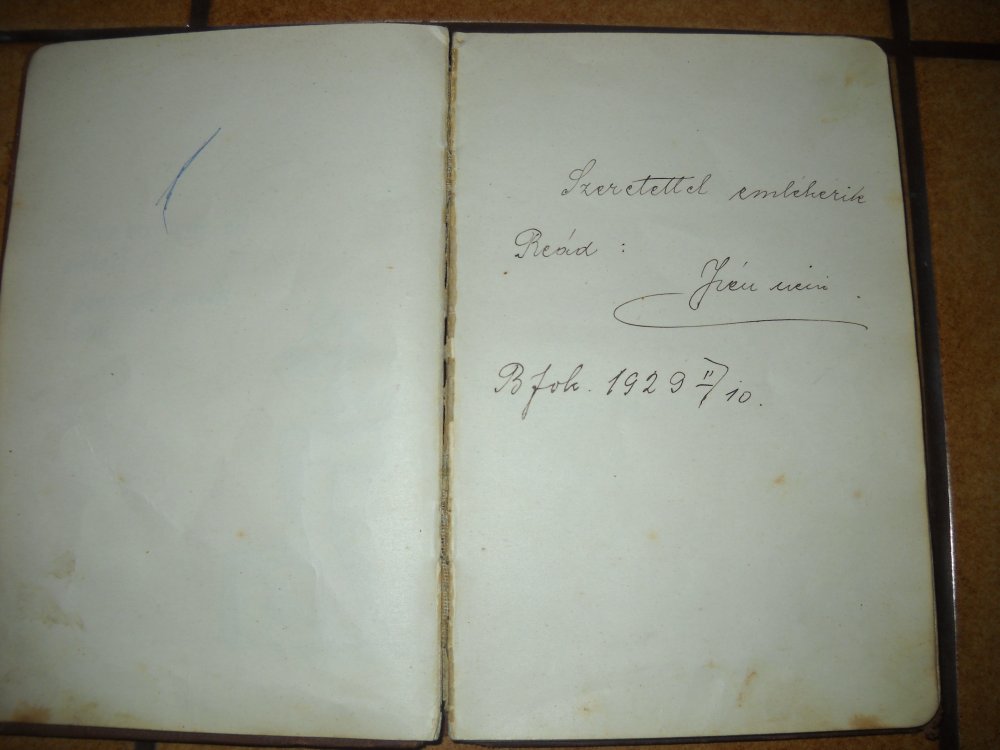 Szeretettel emlékezik
Reád :
néni
Bfok. 1929 II/10.